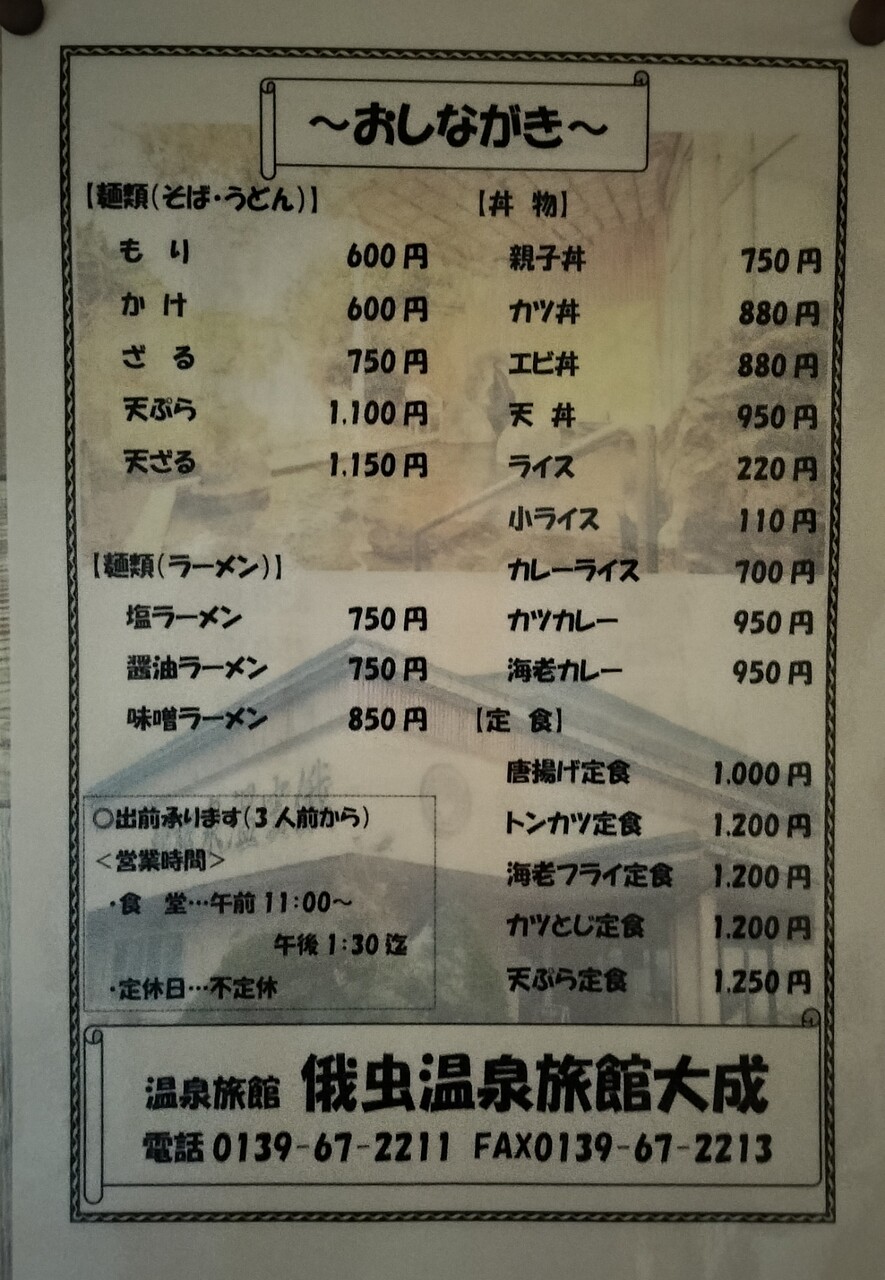 ～おしながき～
【麺類(そば・うどん)】
もり 600円
かけ 600円
ざる 750円
天ぷら 1.100円
天ざる 1.150円
【麺類(ラーメン)】
塩ラーメン 750円
醤油ラーメン 750円
味噌ラーメン 850円
○出前承ります(3人前から)
＜営業時間＞
・食 堂…午前11:00～
午後1:30迄
・定休日…不定休
【丼 物】
親子丼 750円
カツ丼 880円
エビ丼 880円
天 丼 950円
ライス 220円
小ライス 110円
カレーライス 700円
カツカレー 950円
海老カレー 950円
【定 食】
唐揚げ定食 1.000円
トンカツ定食 1.200円
海老フライ定食 1.200円
カツとじ定食 1.200円
天ぷら定食 1.250円
温泉旅館 俄虫温泉旅館大成
電話0139-67-2211 FAX0139-67-2213